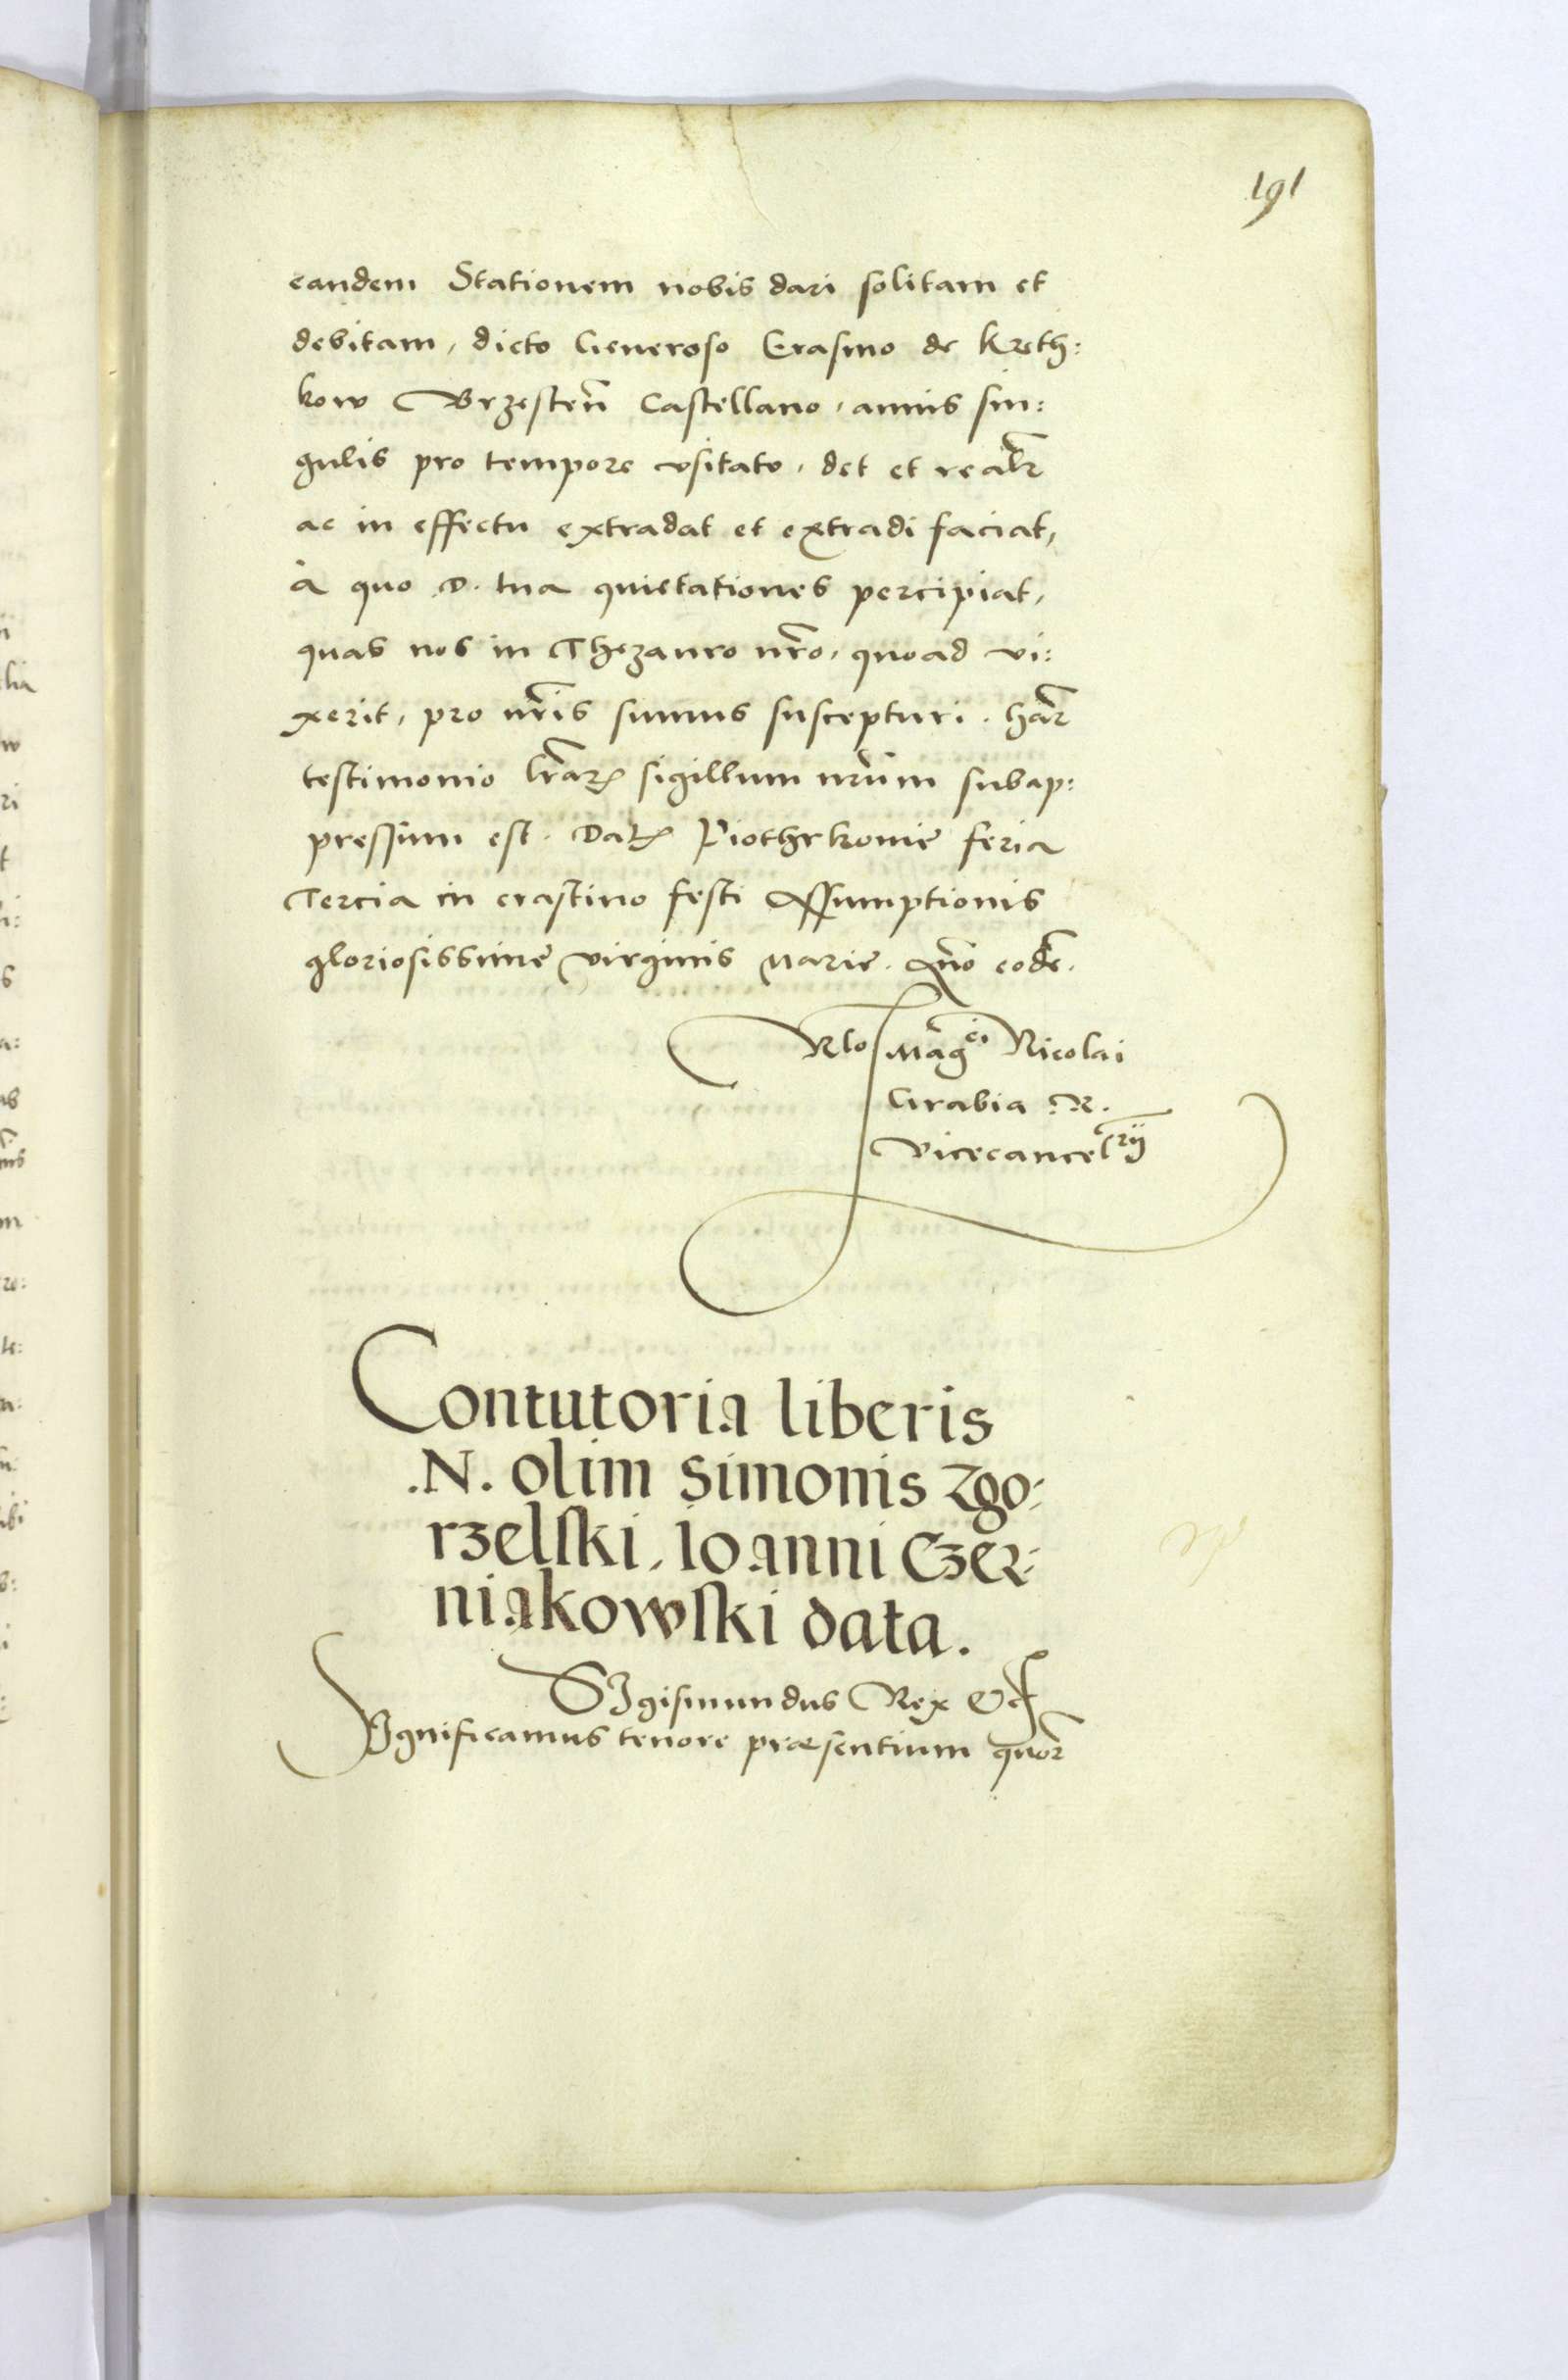 191
eandem Stationem nobis dari solitam et
debitam, dicto Generoso Erasmo de Kreth:
kow Brzesteñ Castellano, annis sin:
gulis pro tempore vsitato, det et realr̃
ac in effectu extradat et extradi faciat,
à quo D. tua quietationes percipiat,
quas nos in Thezauro nr̃o, quoad vi:
xerit, pro nr̃is sumus suscepturi. har̃
testimonio lr̃aꝝ sigillum nr̃um subap:
pressum est. Datꝝ Piothrkouie feria
Tercia in crastino festi Assumptionis
gloriosissime virginis Marie. Año eodẽ.
Rlo Mag̃ci Nicolai
Grabia R.
Vicecancelrij
Contutoria liberis
.N. olim Simonis Zgo:
rzelski, Ioanni Czer:
niakowski data.
SIgismundus Rex &c
SIgnificamus tenore præsentium quor̃